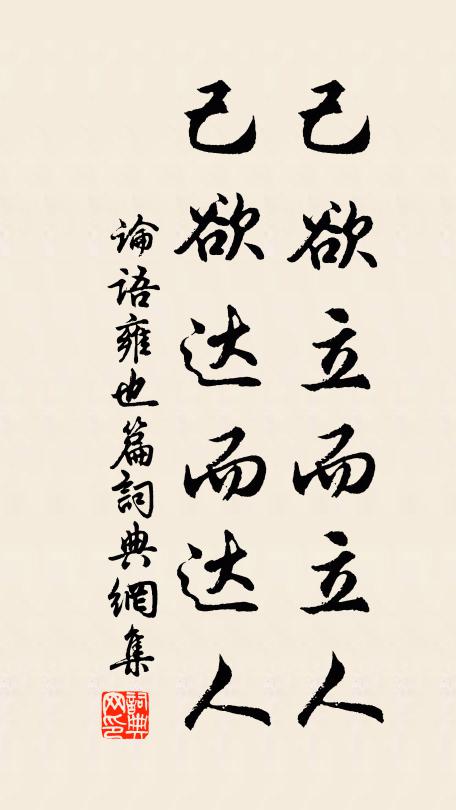 己欲立而立人
己欲达而达人
论语雍也篇詞典網集
詞典
网印